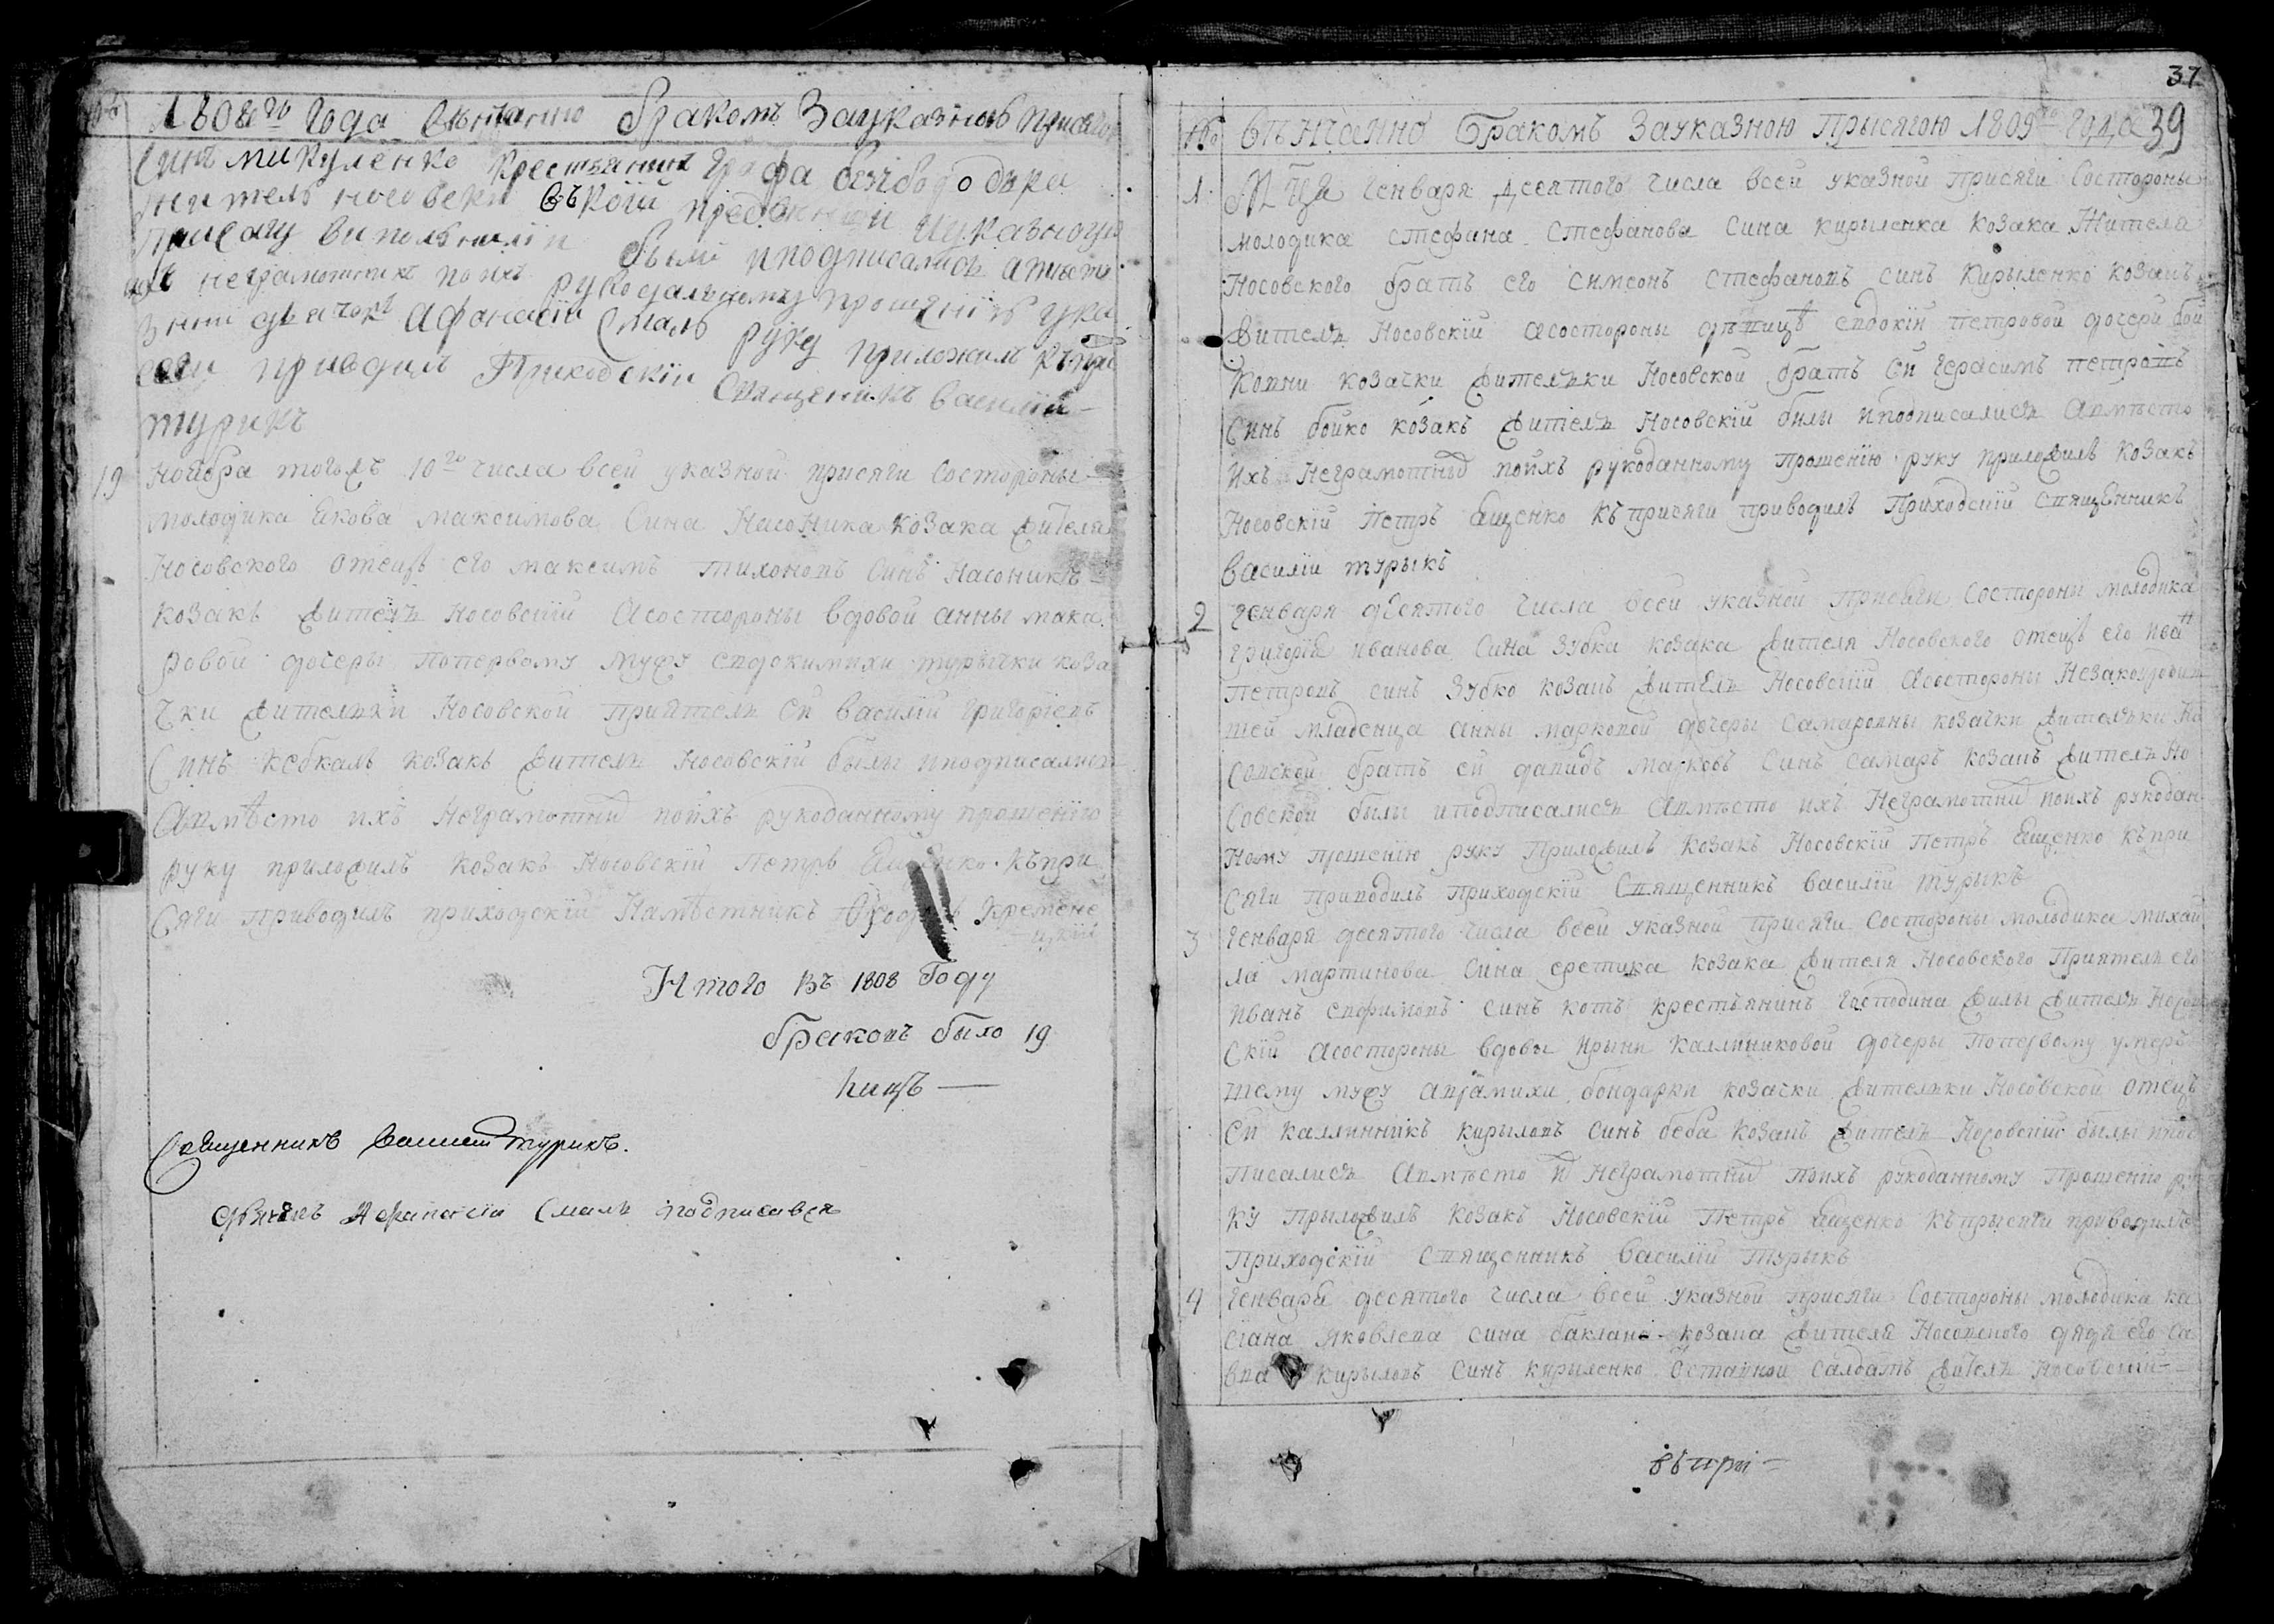 № 1808го года вѣнчанно бракомъ Зауказною присягою
Синъ микуленко крестьянинъ графа безбородька
житель носовски въ коій
присягу виполънили были иподписалися амѣсто
ихъ неграмотнихъ поихъ рукоданному прошению ука
зній дячокъ Афанасій Смаль руку приложилъ къ при
сяги приводилъ Приходскій Священикъ василій
турикъ
19 Ноября тогожъ 10го числа всей указной присяги Состороны
молодика Якова максимова Сина Насоника козака жителя
Носовского отецъ его максимъ тихоновъ Синъ Насоникъ
козакъ житель Носовскій Асостороны вдовой анны мака
ровой дочеры Попервому мужу евдокимихи турычки коза
чки жителки Носовской приятель ей василій григоріевъ
Синъ кебкалъ козакъ житель Носовскій былы иподписалися
Авмѣсто ихъ Неграмотныхъ поихъ рукоданному прошенію
руку приложилъ козакъ Носовскій Петръ Ященко къ при
Сяги приводилъ приходскій Намѣстникъ Феодоръ Кремене
цкій
Итого Въ 1808 Году
браковъ было 19
паръ —
Священникъ василій турикъ.
дьячекъ Афанасій Смаль подписався
37
39
№ Вѣнчанно Бракомъ Зауказною Прысягою 1809го года
1. Мца Генваря Десятого числа всей указной присяги Состороны
молодика стефана стефанова сина кирыленка козака Жителя
Носовского братъ его симеонъ стефановъ синъ Кирыленко козакъ
житель Носовскій асостороны дѣвицѣ евдокіи петровой дочери бой
ковни козачки жителки Носовской братъ ей герасимъ петровъ
Синъ бойко козакъ житель Носовскій были иподписалися Авмѣсто
ихъ Неграмотныхъ поихъ рукоданному прошенію руку приложилъ козакъ
Носовскій Петръ Ященко къ присяги приводилъ Приходскій Священникъ
василій турыкъ
2 Генваря десятого числа всей указной присяги Состороны молодика
григорія иванова сина Зубка козака жителя Носовского отецъ его иванъ
петровъ синъ Зубко козакъ житель Носовскій Асостороны Незакоуродив
шей младенца анны марковой дочеры Самаровны козачки жителки Но
совской братъ ей давидъ марковъ синъ самаръ козакъ житель Но
совской былы иподписалися Авмѣсто ихъ Неграмотныхъ поихъ рукодан
Ному прошенію руку Приложилъ козакъ Носовскій Петръ Ященко къ при
Сяги приводилъ Приходскій Священникъ василій турыкъ
3 Генваря десятого числа всей указной присяги Состороны молодика михай
ла мартинова Сина еретика козака жителя Носовского Приятель его
иванъ евфимовъ синъ котъ крестьянинъ Господина жилы житель Носов
скій асостороны вдовы ирыны каллиниковой дочеры Попервому умерв
шему мужу аврамихи бондарки козачки жителки Носовской отецъ
ей каллинникъ кирыловъ синъ беба козакъ житель Носовскій былы ипод
писалися Авмѣсто ихъ неграмотныхъ поихъ рукоданному Прошенію ру
ку прыложилъ козакъ Носовскій Петръ Ященко къ прысяги приводилъ
приходскій Священникъ василій турыкъ
4 Генваря десятого числа всей указной присяги Состороны молодика ка
сіана яковлева сина баклана козака жителя Носовского дядя его са
вва кирыловъ синъ кирыленко отставной салдатъ житель носовскій
въ при